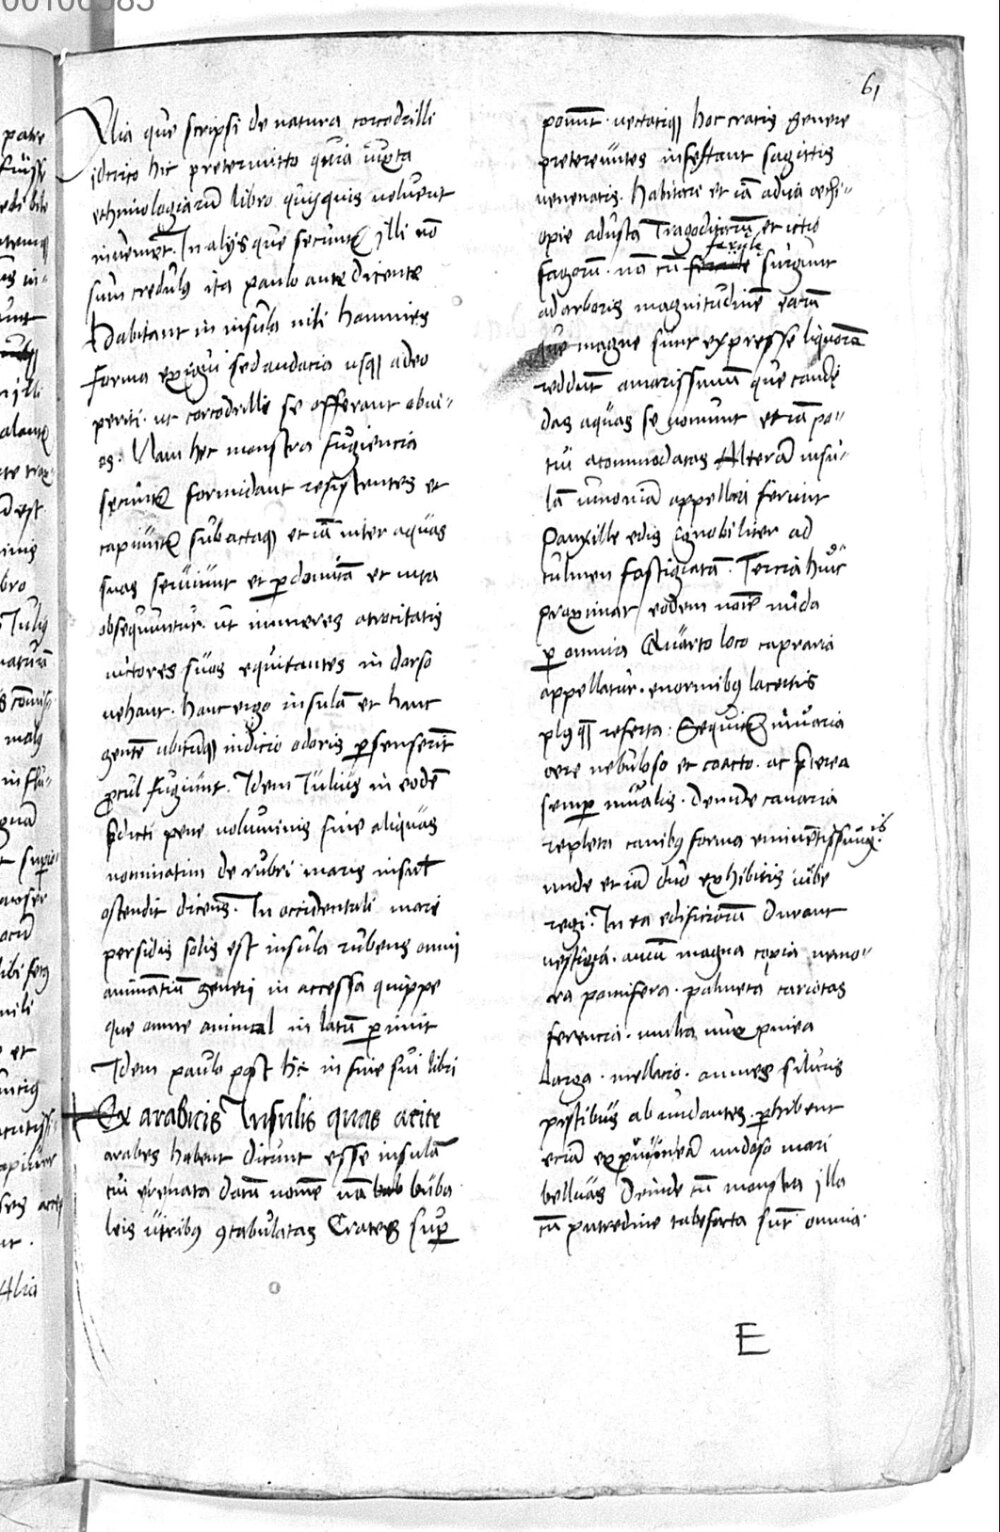 61
Alia que scripsi de natura corcodrilli
idcirco hic pretermitto quia iuxta
ethimologiarũ libro quisquis voluerit
inveniet. In alijs que secunt illi nõ
sum credulus ita paulo ante dicente
Habitant in insula nili homines
forma exigui sed audacia usq adeo
periti. ut corcodrillis se offerant obui-
os. Nam hec monstra fugiencia
secunt formidant resistentes et
capiunt subactaq et iã inter aquas
suas seruiunt et pdomitã et ita
obsequuntur. ut inmeres atrocitatis
victores suos equitantes in dorso
vehant. hanc ergo insulã et hanc
gentẽ ubicũq indicio odoris psenserĩt
procul fugiunt. Idem Iulius in eodẽ
pdicti pene voluminis fine aliquas
nominatim de rubri maris insul
ostendit dicens. In occidentali mare
persidis solis est insula rubens omni
animantiũ generi in accessa quippe
que omne animal in latũ pimit
Idem paulo post hic in fine sui libri
Ex arabicis Insulis quas acite
arabes habent dicunt esse insulã
cui evenata datũ nomẽ nã bub buba
leis utribus 9tabulatas Crates sup
ponunt. vectatiq hoc cratis genere
pretereuntes infestant sagittis
venenatis. habitari et iã adiia ethi-
opie adusta Tragoditarũ et ictio
fagorũ. nã cũ ferule ferule surgunt
ad arboris magnitudinẽ earũ
que magne sunt expresse liquorẽ
reddunt amarissimũ que candi
das aquas se vomunt et iã po-
tui acommodatas Alterã insu-
lã iunoniã appellari ferunt
Pauxille edis ignobiliter ad
culmen fastigatã. Tercia huic
proximat eodem noĩe nuda
p omnia Quarto loco capraria
appellatur. enormibus lacertis
plus q̃ referta. Sequit nivaria
aere nebuloso et coacto. ac pterea
semp nivalis. Deinde canaria
repleta canibus forma eminẽtissimis
unde et iã duo exhibitis iube
regi. In ea edificiorũ durant
vestigia. aviũ magna copia nemo-
ra pomifera. palmeta cariotas
ferencia. multa nux pinea
larga. mellacio. amnes siluris
pistibus abundantes. phibent
eciã undoso mari
belluas Deinde cũ monstra illa
cũ putredine tabefacta sũt omnia.
E